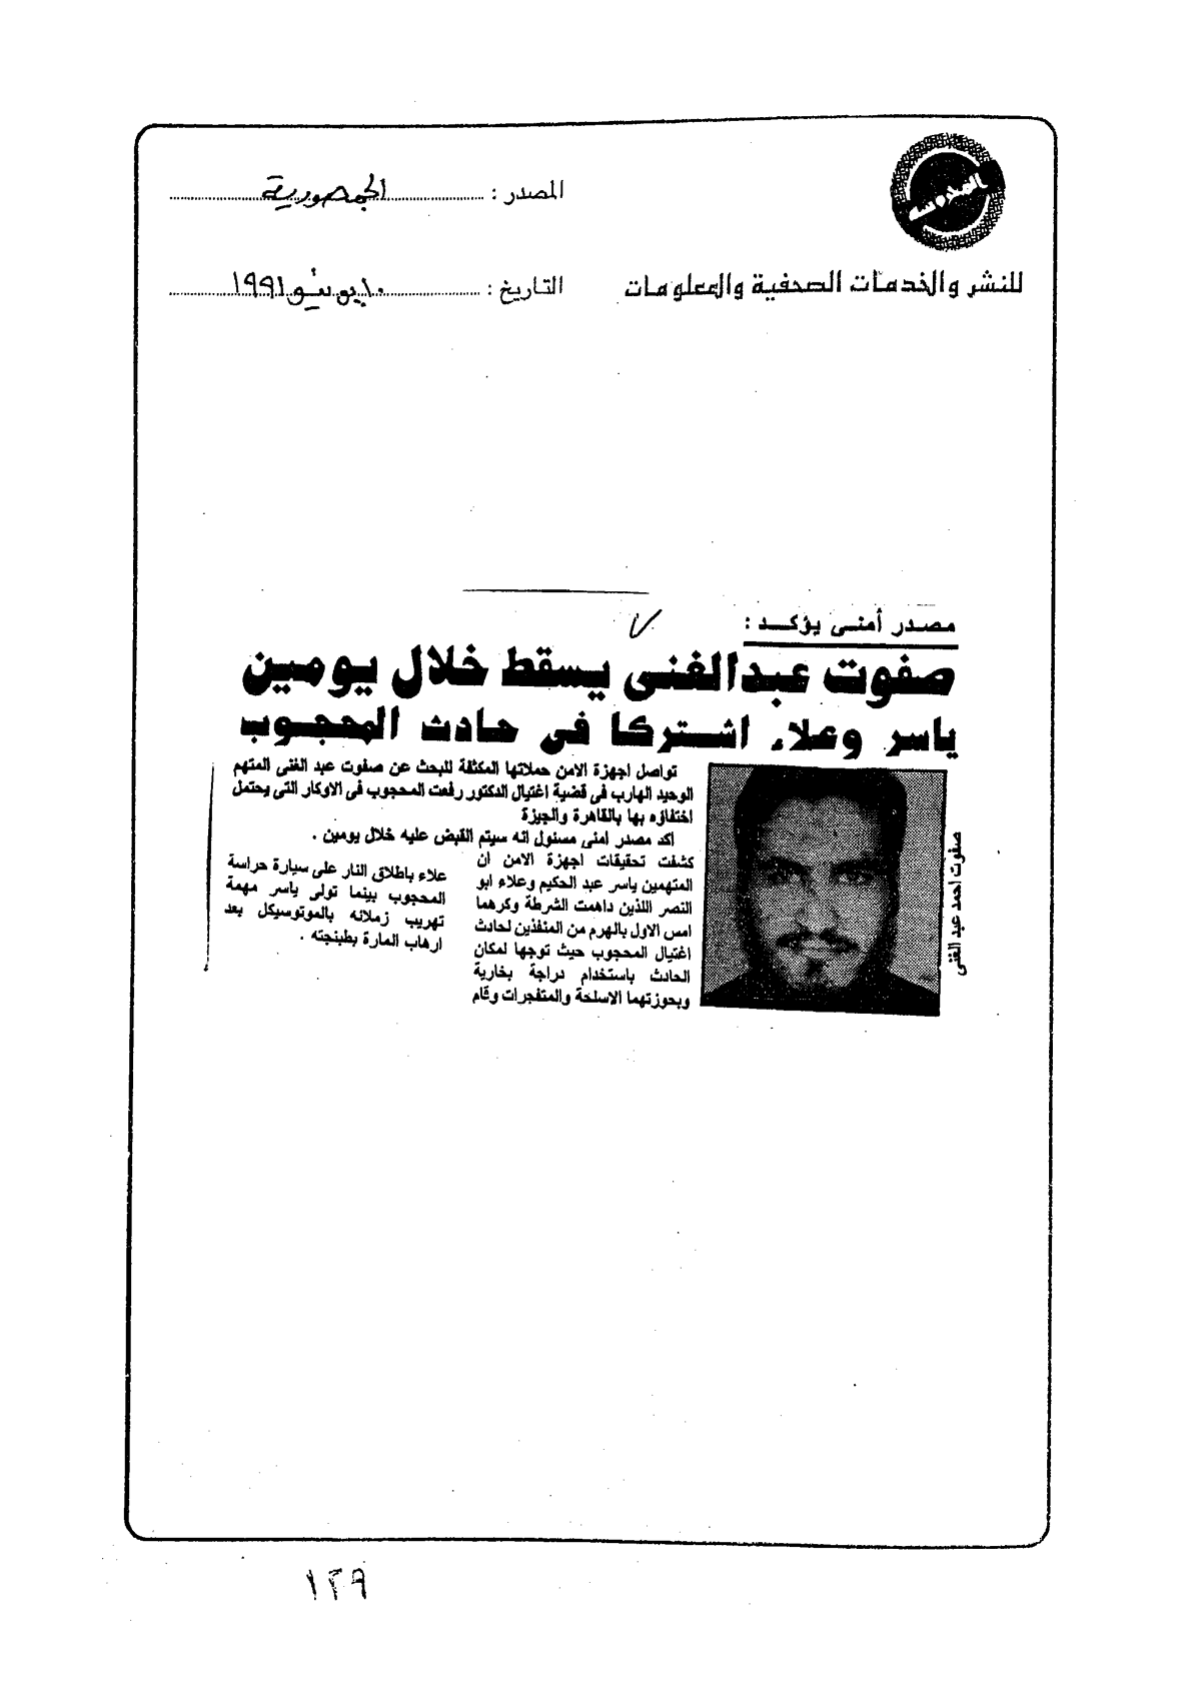 المصدر : الجمهورية
للنشر والخدمات الصحفية والمعلومات
التاريخ : ١٠ يونيو ١٩٩١
مصدر أمنى يؤكد :
صفوت عبدالغنى يسقط خلال يومين
ياسر وعلاء اشتركا فى حادث المحجوب
تواصل اجهزة الامن حملاتها المكثفة للبحث عن صفوت عبد الغنى المتهم
الوحيد الهارب فى قضية اغتيال الدكتور رفعت المحجوب فى الاوكار التى يحتمل
اختفاؤه بها بالقاهرة والجيزة
اكد مصدر امنى مسئول انه سيتم القبض عليه خلال يومين .
كشفت تحقيقات اجهزة الامن ان
المتهمين ياسر عبد الحكيم وعلاء ابو
النصر اللذين داهمت الشرطة وكرهما
امس الاول بالهرم من المنفذين لحادث
اغتيال المحجوب حيث توجها لمكان
الحادث باستخدام دراجة بخارية
وبحوزتهما الاسلحة والمتفجرات وقام
علاء باطلاق النار على سيارة حراسة
المحجوب بينما تولى ياسر مهمة
تهريب زملائه بالموتوسيكل بعد
ارهاب المارة بطبنجته .
صفوت احمد عبد الغنى
١٢٩